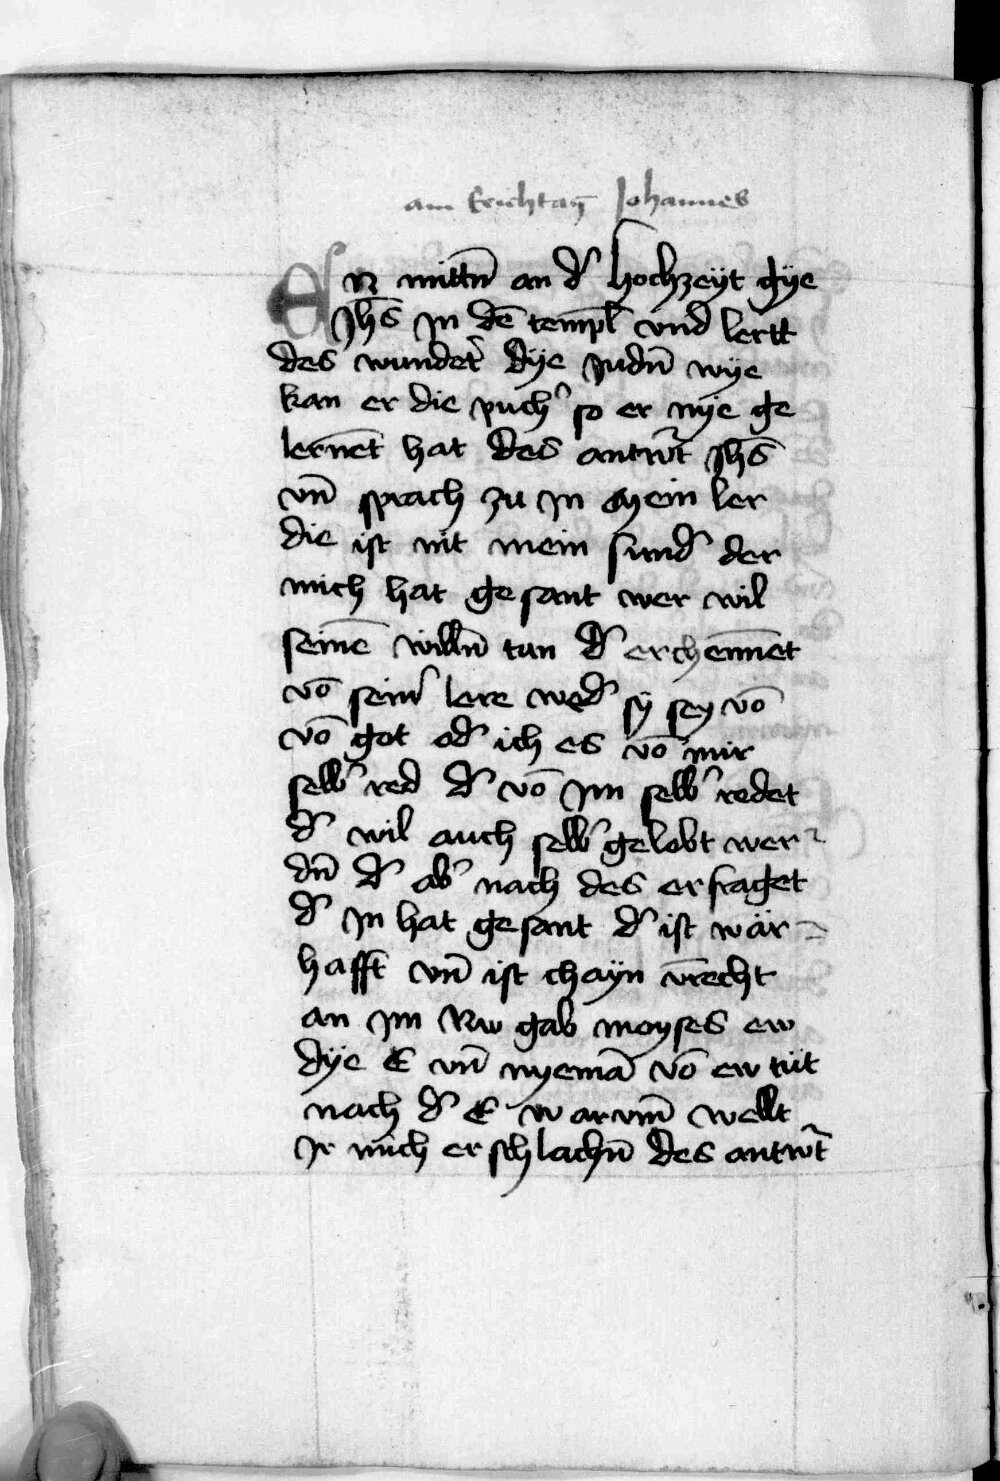 am Erichtag Johannes
ER mittn̄ an d' hochzeÿt gÿe
Jhs̄ Jn dē templ̄ vnd lertt
des wundet' dÿe Judn̄ wÿe
kan er die puch' so er nÿe ge
lernēt hat des antwꝛ̄t Jhs̄
vn̄ sprach zu Jn Mein ler
die ist nit mein sund' der
mich hat gesant wer wil
seinē willn̄ tun d' erchennēt
vō sein' lere wed' sÿ sey vō
vō got od' ich es vō mir
selb' red d' vō Jm selb' redet
d' wil auch selb' gelobt wer-
dn̄ d' ab' nach des er fraget
d' Jn hat gesant d' ist wär=
hafft vn̄ ist chaÿn v̄recht
an Jm Nw gab moyses ew
dÿe E vn̄ nyemā vō ew tüt
nach d' E warvm̄ wellt
Jr mich er schlachn̄ des antwt̄